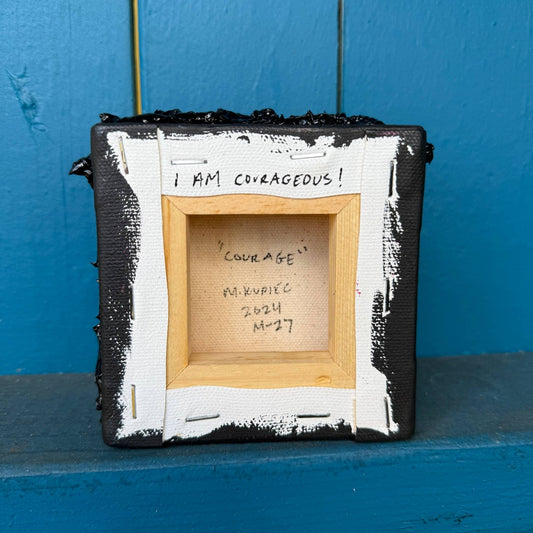 I AM COURAGEOUS!
"COURAGE"
M. KUPIEC
2024
M-27